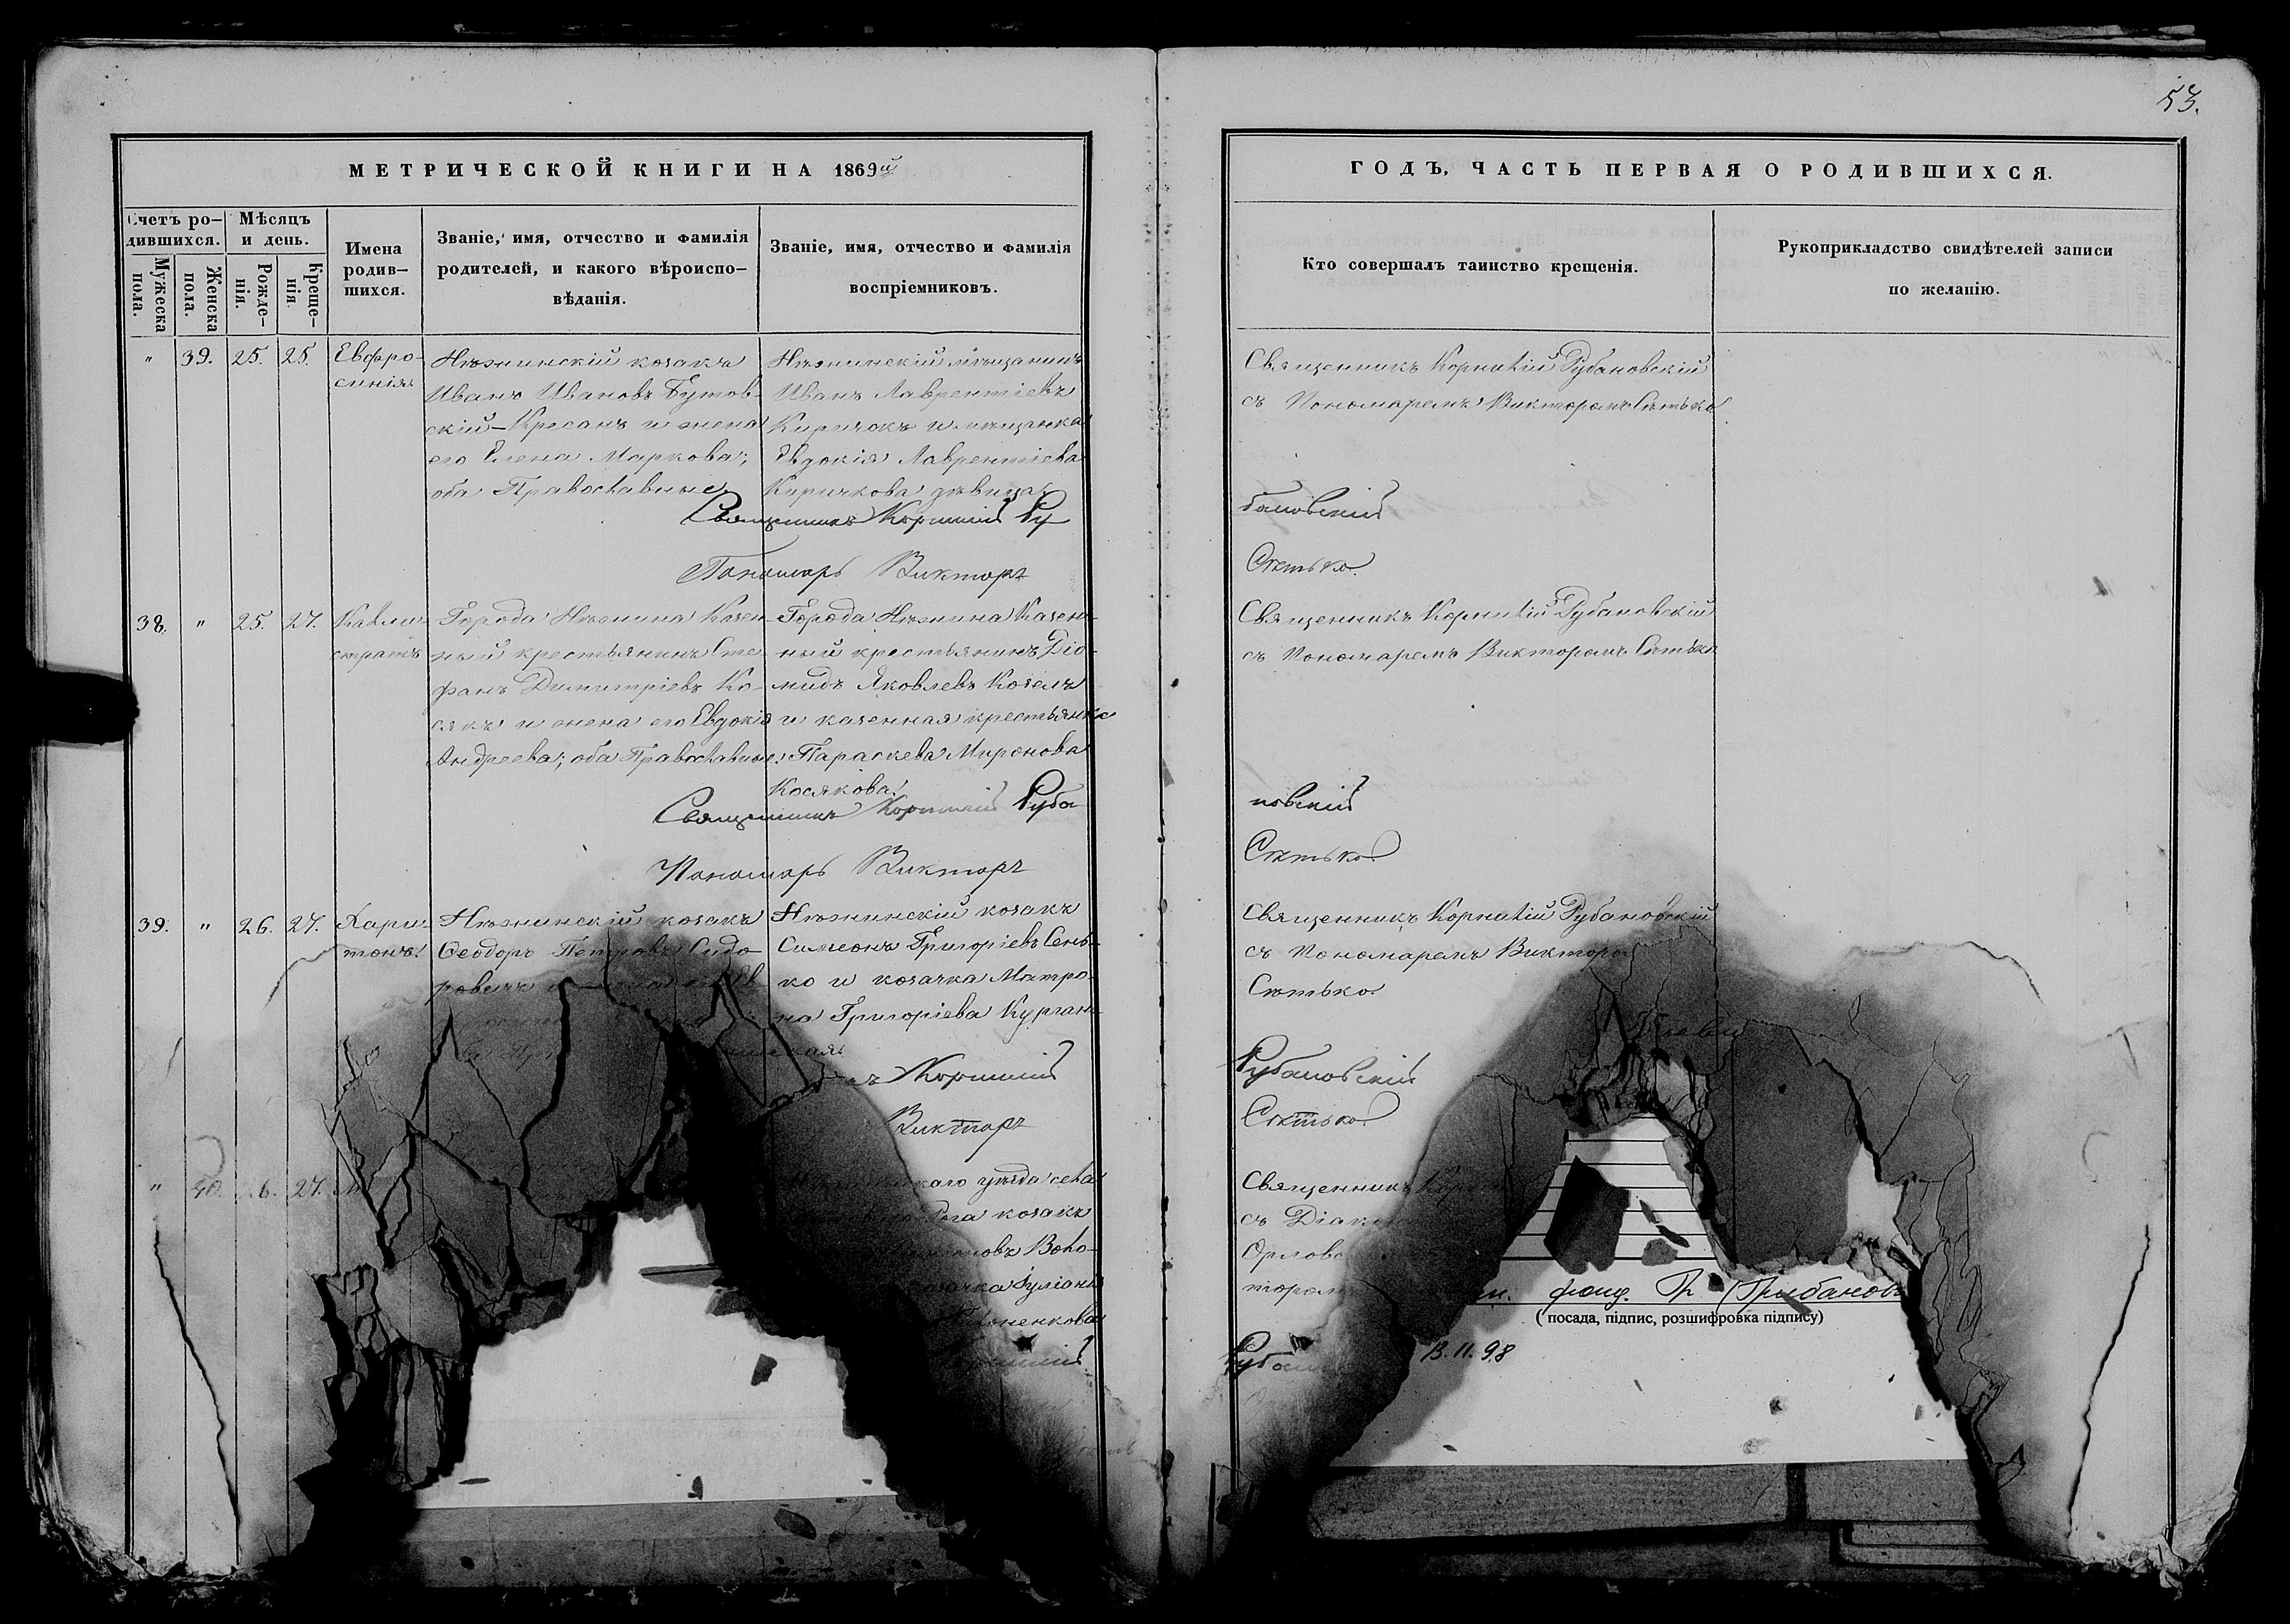 53.
МЕТРИЧЕСКОЙ КНИГИ НА 1869й
ГОДЪ, ЧАСТЬ ПЕРВАЯ О РОДИВШИХСЯ.
Счетъ ро-
дившихся.
Мужеска пола.
Женска пола.
Мѣсяцъ
и день.
Рожде-
нія.
Креще-
нія.
Имена
родив-
шихся.
Званіе, имя, отчество и фамилія
родителей, и какого вѣроиспо-
вѣданія.
Званіе, имя, отчество и фамилія
воспріемниковъ.
Кто совершалъ таинство крещенія.
Рукоприкладство свидѣтелей записи
по желанію.
" 39. 25. 25.
Евфро-
синія
Нѣжинскій козакъ
Иванъ Ивановъ Бутов-
скій-Кресанъ и жена
его Елена Маркова;
оба Православные
Нѣжинскій мѣщанинъ
Иванъ Лаврентіевъ
Киричокъ и мѣщанка
Евдокія Лаврентіева
Киричкова дѣвица
Священникъ Корнилій Рубановскій
съ Пономаремъ Викторомъ Сѣтько
Священникъ Корнилій Ру
бановскій
Пономарь Викторъ
Сѣтько.
38. " 25. 27.
Калли-
стратъ
Города Нѣжина Казен-
ный крестьянинъ Сте-
фанъ Димитріевъ Ко-
сякъ и жена его Евдокія
Андреева; оба Православные;
Города Нѣжина Казен-
ный крестьянинъ Діо-
мидъ Яковлевъ Козелъ
и казенная крестьянка
Параскева Миронова
Косякова.
Священникъ Корнилій Рубановскій
съ Пономаремъ Викторомъ Сѣтько
Священникъ Корнилій Руба
новскій
Пономарь Викторъ
Сѣтько
39. " 26. 27.
Хари-
тонъ.
Нѣжинскій козакъ
Ѳеодоръ Петровъ Сидо-
Нѣжинскій козакъ
Симеонъ Григоріевъ Сень-
ко и козачка Матро-
на Григоріева Курган-
Священникъ Корнилій Рубановскій
съ Пономаремъ Викторо
Сѣтько.
Корнилій
Рубановскій
Викторъ
Сѣтько
" 40. 26. 27.
уѣзда села
Рога козакъ
козачка Іуліанія
Священникъ
съ Діак
Орлов
тором
Корнилій
фонд. Грибанов
(посада, підпис, розшифровка підпису)
13.11.98